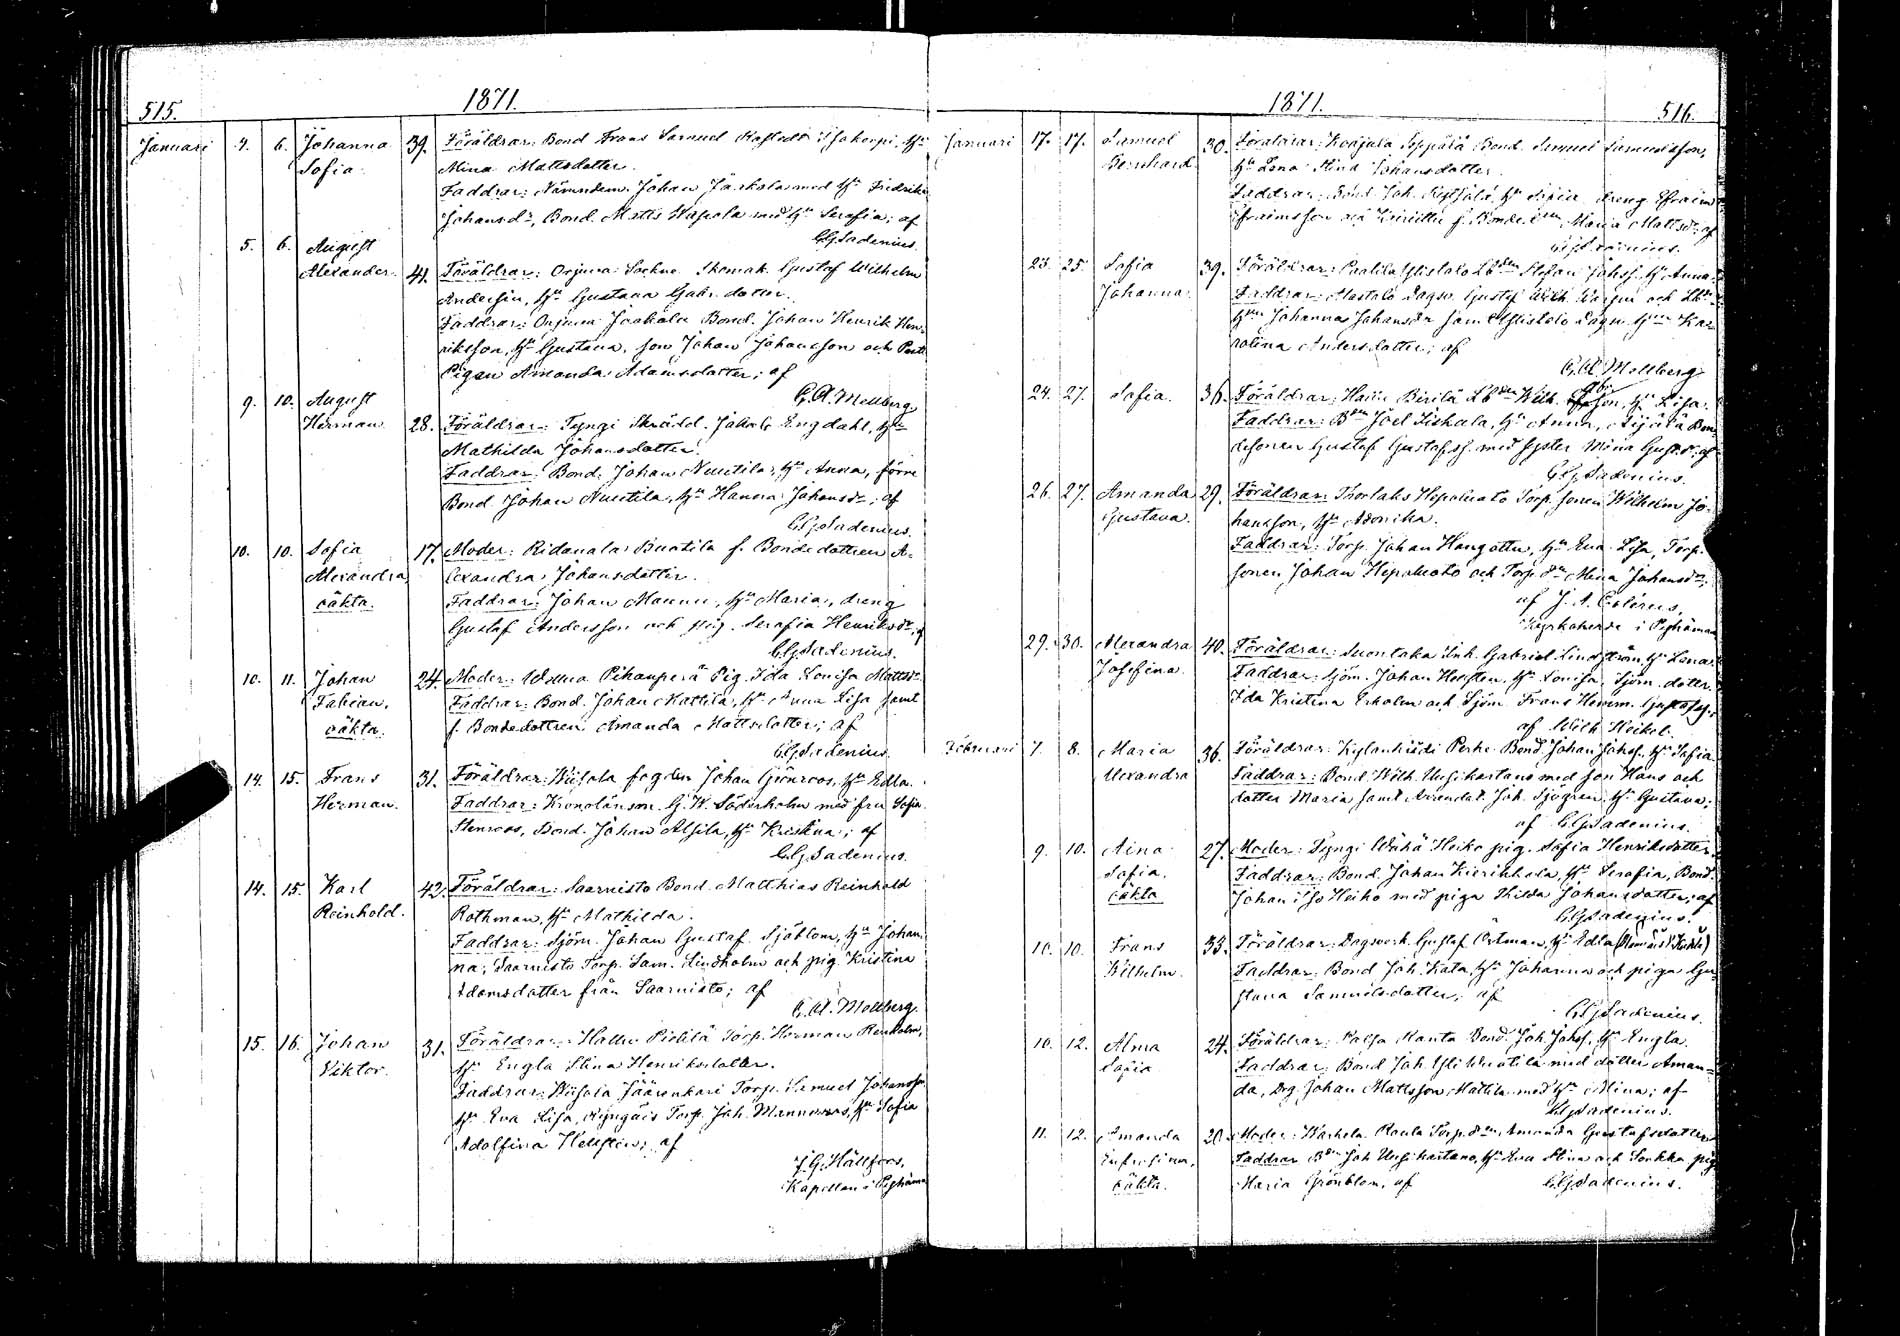 515.
1871.
Januari 4. 6. Johanna 39. Föräldrar: Bond Frans Samuel Isokorpi, Hu
Sofia. Mina Mattsdotter.
Faddrar: Nämndem. Johan Jaakola med Hu Fredrika
Johansdr, Bond. Matts Uapala med Hu Serafia; af
C.G. Sadenius.
5. 6. August
Alexander. 41. Föräldrar: Orjuna Sockne Skomak. Gustaf Wilhelm
Andersin, Hu Gustava Gabr. dotter.
Faddrar: Orjuna Jaakola Bond. Johan Henrik Hen-
riksson, Hu Gustava, son Johan Johansson och
Pigan Amanda Adamsdotter; af
G.A. Mollberg.
9. 10. August
Herman 28. Föräldrar: Tyngi Skrädd. Jakob Engdahl, Hu
Mathilda Johansdotter.
Faddrar: Bond. Johan Nuutila, Hu Anna, förre
Bond. Johan Nuutila, Hu Hanna Johansdr; af
C.G. Sadenius.
10. 10. Sofia 17. Moder: Ridanala Buntila f. Bondedottren A-
Alexandra lexandra Johansdotter.
oäkta. Faddrar: Johan Mannu, Hu Maria, dreng
Gustaf Andersson och pig. Serafia Henriksdr, af
C.G. Sadenius.
10. 11. Johan 24. Moder: Pihanperä Pig. Ida Lovisa Mattsdr
Fabian, Faddrar: Bond. Johan Mattila, Hu Anna Lisa samt
oäkta. f. Bondedottren Amanda Mattsdotter; af
C.G. Sadenius.
14. 15. Frans 31. Föräldrar: Wiisala fogden Johan Grönroos, Hu Edla.
Herman. Faddrar: Kronolänsm. G. W. Söderholm med fru Sofia
Stenroos, Bond. Johan Alsila, Hu Kristina; af
C.G. Sadenius.
14. 15. Karl 42. Föräldrar: Saarnisto Bond. Matthias Reinhold
Reinhold. Rothman, Hu Mathilda.
Faddrar: Sjöm. Johan Gustaf Sjöblom, Hu Johan-
na, Saarnisto Torp. Sam. Lindholm och pig. Kristina
Adamsdotter från Saarnisto; af
G.A. Mollberg.
15. 16. Johan 31. Föräldrar: Hallu Pietilä Torp. Herman Renholm,
Viktor. Hu Engla Stina Henriksdotter.
Faddrar: Wiisala Jäärenkari Torp. Samuel Johansson
Hu Eva Lisa, Torp. Joh. Mannroos, Hu Sofia
Adolfina Hellsten; af
J.G. Hällfors,
Kapellan i Pyhämaa
1871.
516.
Januari 17. 17. Samuel 30. Föräldrar: Seppälä Bond. Samuel Samuelsson,
Bernhard. Hu Lena Stina Johansdotter.
Faddrar: Bond. Joh. Hu Sofia, dreng Efraim
Efraimsson och f. Bonde Maria Mattsdr; af
C.G. Sadenius.
23. 25. Sofia 39. Föräldrar: Paatila Ylistalo Stefan Johss. Hu Anna.
Johanna. Faddrar: Alastalo Dagsv. Gustaf Wilh. och
Johanna Johansdr sam Ylistalo Dagsv. Ka-
rolina Andersdotter; af
G.A. Mollberg
24. 27. Sofia. 36. Föräldrar: Wilh. son, Hu Lisa.
Faddrar: Joel Hu Anna, Äijälä Bon-
desonen Gustaf Gustafss. med syster Mina Gust.dr; af
C.G. Sadenius.
26. 27. Amanda 29. Föräldrar: Thorlaks Hepoluoto Torp. sonen Wilhelm Jo-
Gustava. hansson, Hu Adonika.
Faddrar: Torp. Johan Haugottu, Hu Eva Lisa, Torp.
sonen Johan Hepoluoto och Torp. Mina Johansdr;
af J. A. Colérus,
Kyrkoherde i Pyhämaa
29. 30. Alexandra 40. Föräldrar: Suontaka Inh. Gabriel Lindström, Hu Lena.
Josefina. Faddrar: Sjöm. Johan Hellsten, Hu Lovisa, Sjöm. dotter
Ida Kristina Ekholm och Sjöm. Frans Herrm. Gustafss.
af Wilh. Heikel.
Februari 7. 8. Maria 36. Föräldrar: Kylänkiidi Perhe Bond. Johan Johss. Hu Sofia
Alexandra Faddrar: Bond. Wilh. Uusikartano med son Hans och
dotter Maria samt Arrendat. Joh. Sjögren, Hu Gustava;
af C.G. Sadenius.
9. 10. Aina 27. Moder: Tyngi Wähä Heiko pig. Sofia Henriksdotter.
Sofia. Faddrar: Bond. Johan Kierikkala, Hu Serafia, Bond.
oäkta Johan Iso Heiko med piga Hilda Johansdotter; af
C.G. Sadenius.
10. 10. Frans 33. Föräldrar: Dagsverk. Gustaf Östman, Hu Edla
Wilhelm. Faddrar: Bond Joh. Kata, Hu Johanna och piga Gu-
stava Samuelsdotter; af
C.G. Sadenius.
10. 12. Alma 24. Föräldrar: Palsa Ranta Bond. Joh. Johss. Hu Engla
Sofia Faddrar: Bond Joh. Yli med dotter Aman-
da, Drg. Johan Mattsson Mattila med Hu Mina; af
C.G. Sadenius.
11. 12. Amanda 20. Moder: Warhela Raula Torp. Amanda Gustafsdotter
Eufrosina, Faddrar Joh. Uusikartano, Hu Eva Stina och Sorkka pig.
oäkta. Maria Grönblom, af C.G. Sadenius.